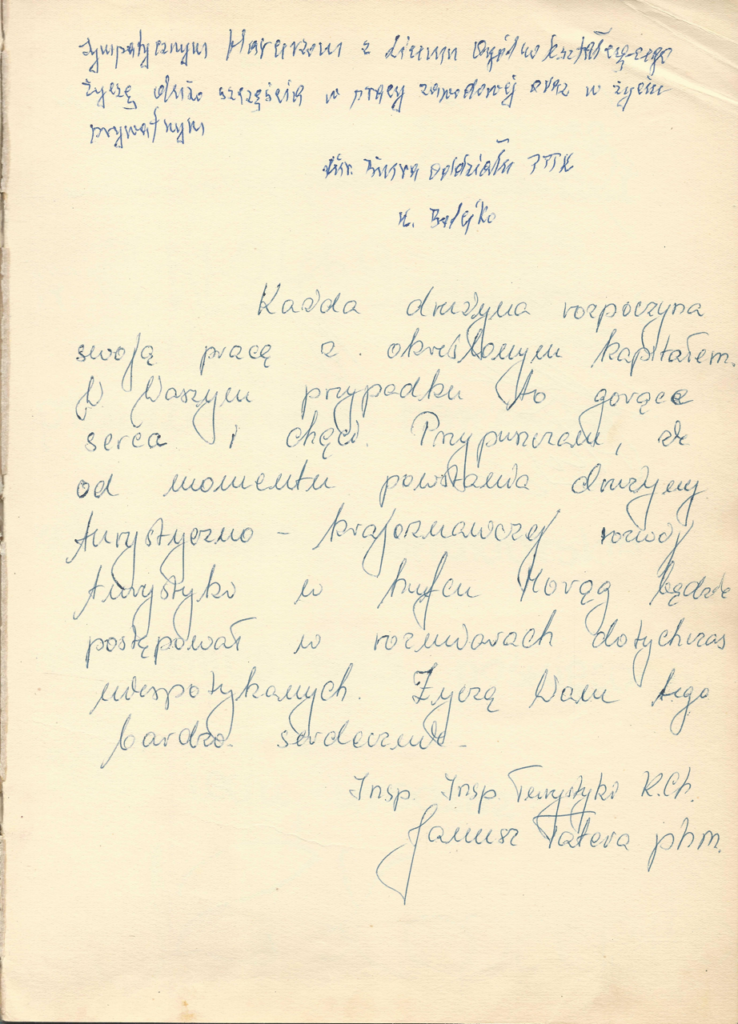 Sympatycznym Harcerzom z Liceum Ogólnokształcącego
życzę dużo szczęścia w pracy zawodowej oraz w życiu
prywatnym
Kier. Biura Oddziału PTTK
K. Bolejko
Każda drużyna rozpoczyna
swoją pracę z określonym kapitałem.
W Waszym przypadku to gorące
serca i chęci. Przypuszczam, że
od momentu powstania drużyny
turystyczno - krajoznawczej rozwój
turystyki w hufcu Morąg będzie
postępował w rozmiarach dotychczas
niespotykanych. Życzę Wam tego
bardzo serdecznie.
Insp. Insp. Turystyki K.Ch.
Janusz Tatera phm.